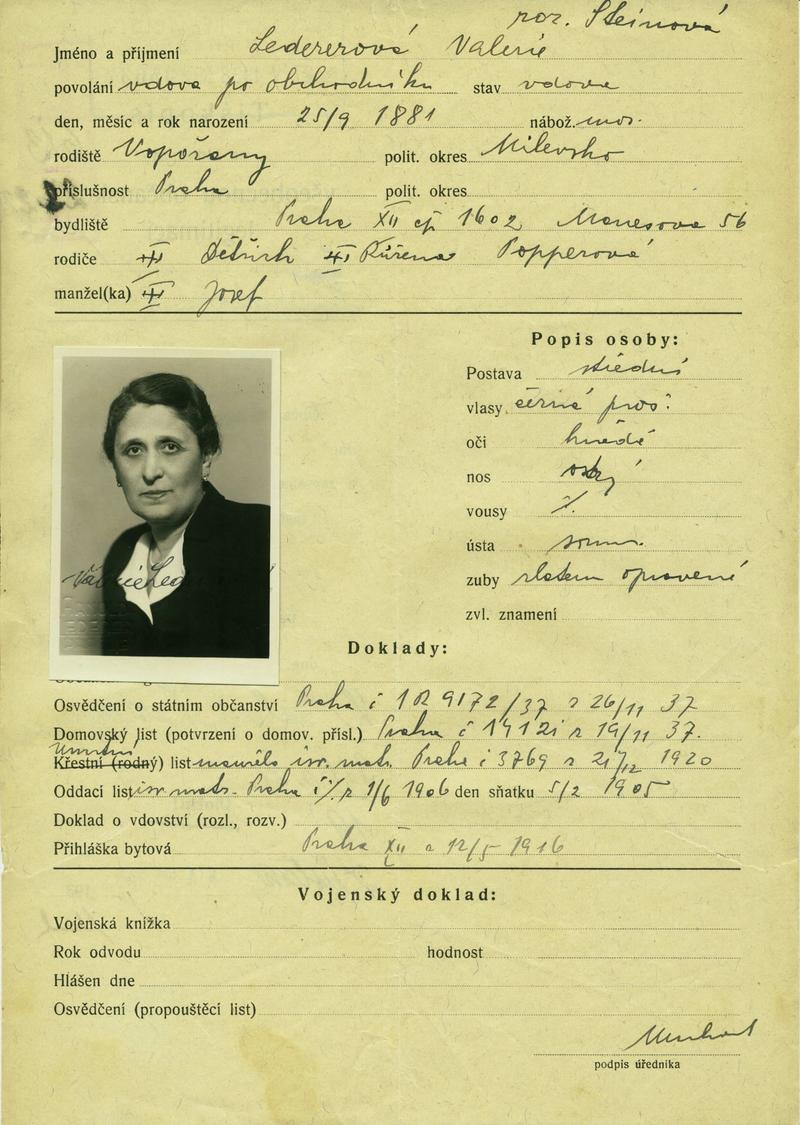 roz. Steinová
Jméno a příjmení Ledererová Valerie
povolání vdova po obchodníku stav vdova
den, měsíc a rok narození 25/9 1881 nábož. mos.
rodiště Vopořany polit. okres Milevsko
příslušnost Praha polit. okres
bydliště Praha XII čp 1602 Manesova 56
rodiče Dětřich Růžena Popperová
manžel(ka) Josef
Popis osoby:
Postava střední
vlasy černé pros.
oči hnědé
nos ostrý
vousy
ústa soum.
zuby zlatem opravené
zvl. znamení
Valerie Led
Doklady:
Osvědčení o státním občanství Praha č 1R 9172/37 z 26/11 37
Domovský list (potvrzení o domov. přísl.) Praha č z 19/11 37.
Křestní (rodný) list isr. mat. Praha č 3769 z 21/12 1920
Oddací list isr. mat. Praha č z 1/6 1906 den sňatku 5/2 1905
Doklad o vdovství (rozl., rozv.)
Přihláška bytová Praha XII 12/5 1916
Vojenský doklad:
Vojenská knížka
Rok odvodu hodnost
Hlášen dne
Osvědčení (propouštěcí list)
podpis úředníka